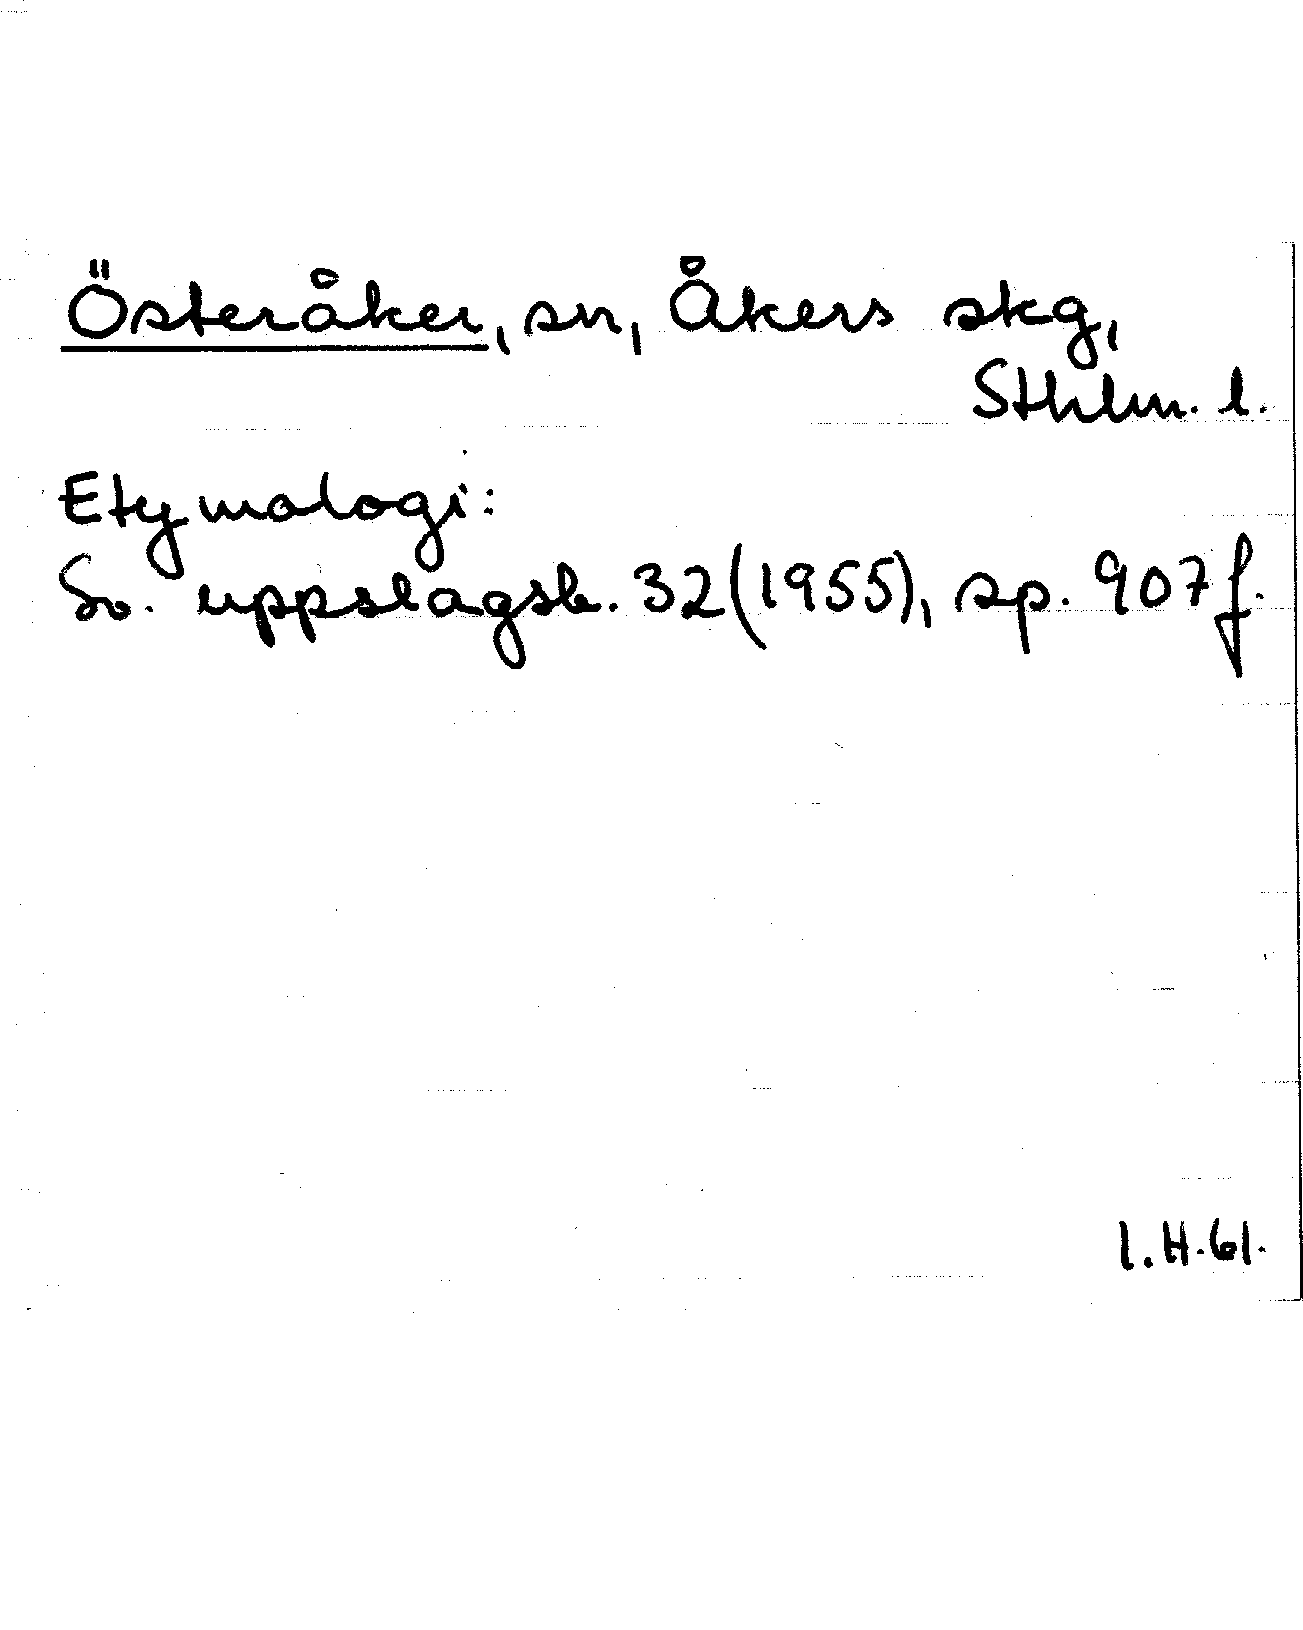 Österåker, sn, Åkers skg,
Sthlm. l.
Etymologi:
Sv. uppslagsb. 32(1955), sp. 907f.
I.H.61.